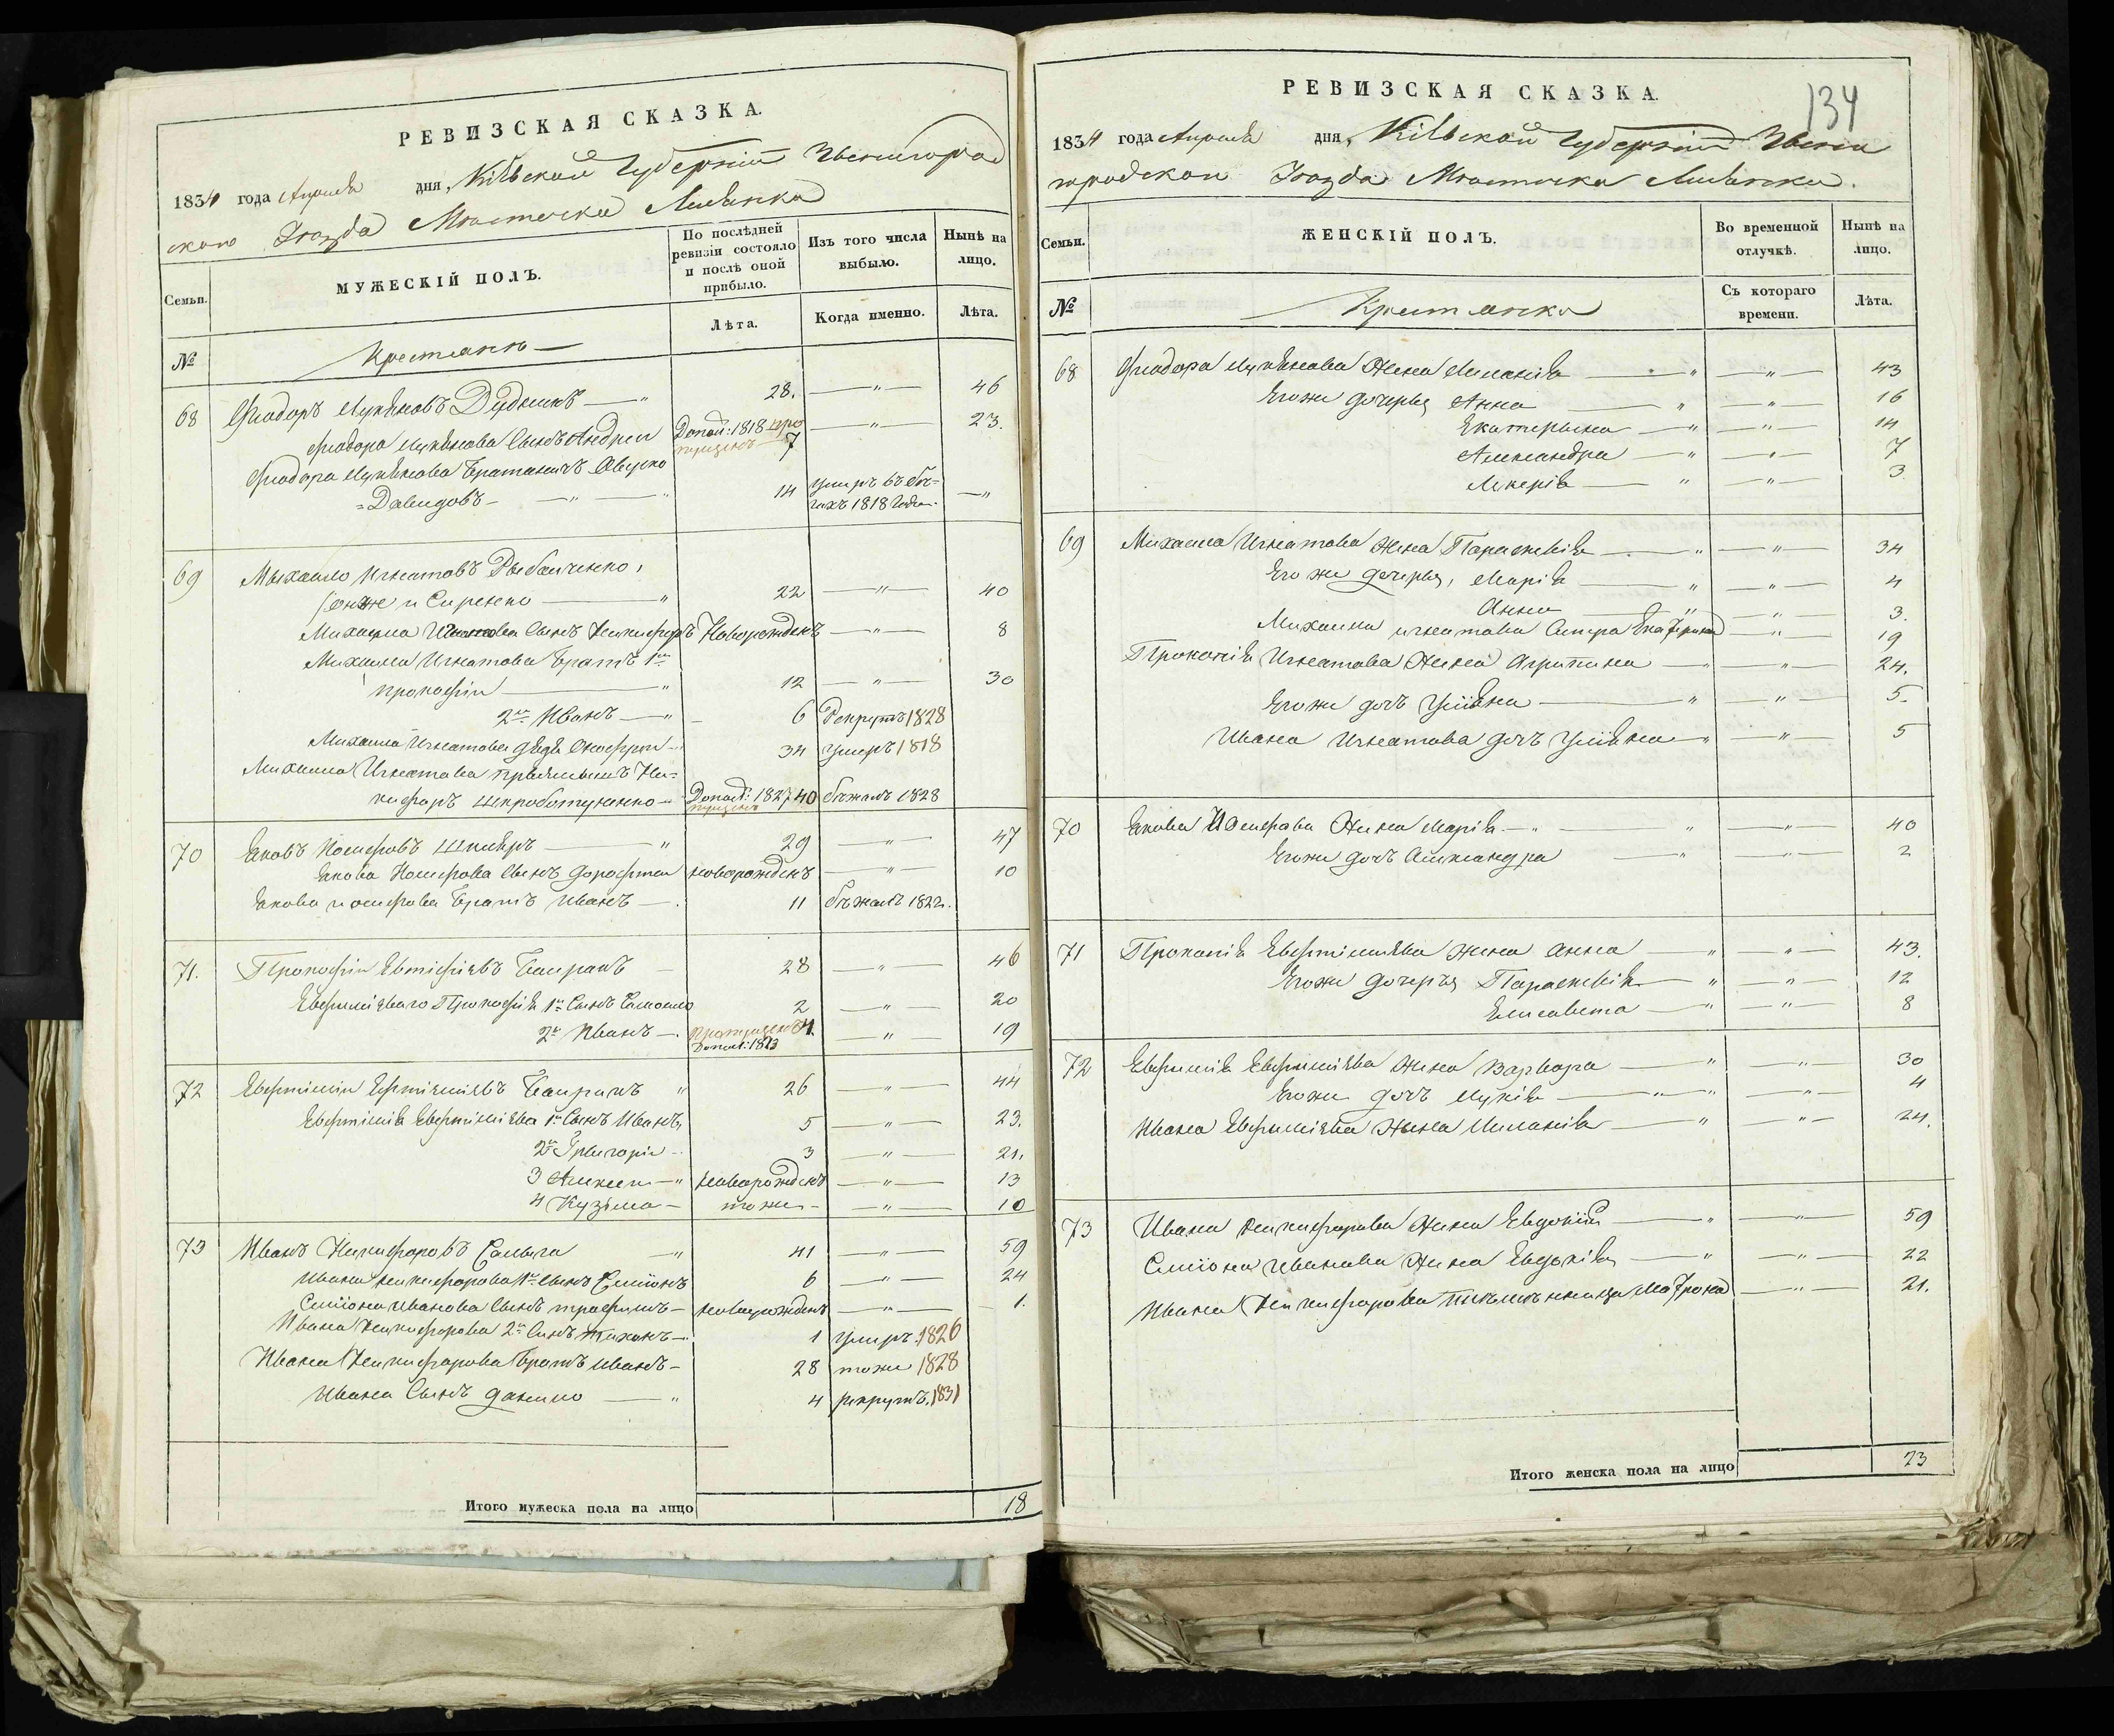 РЕВИЗСКАЯ СКАЗКА.
1834 года Апреля дня, Кіевской Губерніи Звенигород
ского Уезда Местечка Лисянки
Семьи.
МУЖЕСКІЙ ПОЛЪ.
По послѣдней ревизіи состояло и послѣ оной прибыло.
Изъ того числа выбыло.
Нынѣ на лицо.
№
Крестьяне
Лѣта.
Когда именно.
Лѣта.
68 Фиодоръ Лукяновъ 28. — " — 46
Фиодора Лукянова Сынъ Андрей Допол: 1818 про пущенъ 7 — " — 23.
Фиодора Лукянова Братаничъ
Давидовъ — " — 14 умиръ въ бѣ- гахъ 1818 Года — "
69 Михайло Игнатовъ Рыбалченко,
онже и Сиренко — " 22 — " — 40
Михаила Игнатова Сынъ Никифоръ Новорожденъ — " — 8
Михаила Игнатова Братъ 1й
прокофій — " 12 — " — 30
2й Иванъ — " 6 Рекрутъ 1828
Михаила Игнатова дядя Онофрий 34 умеръ 1818
Михаила Игнатова Ни=
кифоръ Допол: 1827 40 пущенъ бѣжалъ 1828
70 Яковъ Иосифовъ Шкляръ — " 29 — " — 47
Якова Иосифова Сынъ дорофтей новорожденъ — " — 10
Якова иосифова Братъ Иванъ — 11 бѣжалъ 1822.
71. Прокофій 28 — " — 46
Прокофія 1й Сынъ Самойло 2 — " — 20
2й Иванъ — пропущенъ 4. Допол: 1813 — " — 19
72 26 — " — 44
1й Сынъ Иванъ 5 — " — 23.
2й Григорій 3 — " — 21.
3 Алексей — " новорожденъ — " — 13
4 Кузьма — тоже — " — 10
73 Иванъ Никифоровъ — " 41 — " — 59
Ивана никифорова 1й сынъ Симіонъ 6 — " — 24
Симіона иванова Сынъ трофимъ — новорожденъ — " — 1.
Ивана Никифорова 2й Сынъ тихонъ — 1 умиръ 1826
Ивана Никифорова Братъ иванъ — 28 тоже 1828
Ивана Сынъ данило — " 4 рекрутъ 1831
Итого мужеска пола на лицо 18
134
РЕВИЗСКАЯ СКАЗКА.
1834 года Апреля дня, Кіевской Губерніи Звени
городской Уезда Местечка Лисянки.
Семьи.
ЖЕНСКІЙ ПОЛЪ.
Во временной отлучкѣ.
Нынѣ на лицо.
№
Крестьянки
Съ котораго времени.
Лѣта.
68 Фиодора Лукянова Жена Миланія — " — " — 43
Егоже дочерья Анна — " — " — 16
Екатерына — " — " — 14
Александра — " — " — 7
Лукерія — " — " — 3.
69 Михаила Игнатова Жена Параскевія — " — " — 34
Егоже дочерья, Марія — " — " — 4
Анна — " — " — 3.
Михаила игнатова Систра Екатерина — " — 19
Прокопія Игнатова Жена Агрипина — " — " — 24.
Егоже дочъ Уліяна — " — " — 5.
Ивана Игнатова дочъ Уліяна — " — " — 5
70 Якова Иосифова Жена Марія — " — " — " — 40
Егоже дочъ Александра — " — " — 2
71 Прокопія жена анна — " — " — 43.
Егоже дочерья Параскевія — " — " — 12
Елисавета — " — " — 8
72 Жена Варвара — " — " — 30
Егоже дочъ Лукія — " — " — 4
Ивана Жена Миланія — " — " — 24.
73 Ивана Никифорова Жена Евдокія — " — " — 59
Симіона иванова Жена Евдокія — " — " — 22
Ивана Никифорова племенница Матрона — " — 21.
Итого женска пола на лицо 23